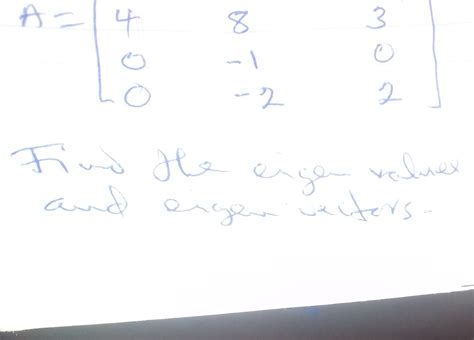 A = [ 4 8 3
0 -1 0
0 -2 2 ]
Find the eigen values
and eigen vectors.